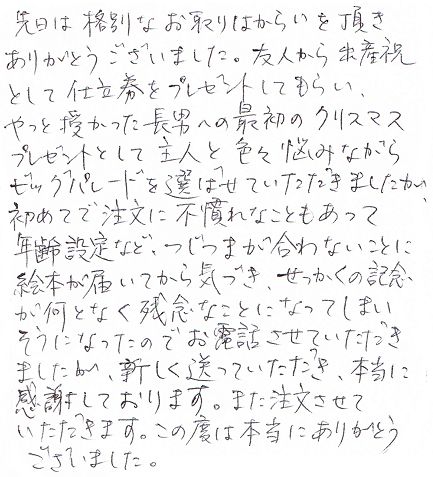 先日は格別なお取りはからいを頂き
ありがとうございました。友人から出産祝
として仕立券をプレゼントしてもらい、
やっと授かった長男への最初のクリスマス
プレゼントとして主人と色々悩みながら
ビッグパレードを選ばせていただきましたが、
初めてで注文に不慣れなこともあって
年齢設定など、つじつまが合わないことに
絵本が届いてから気づき、せっかくの記念
が何となく残念なことになってしまい
そうになったのでお電話させていただき
ましたが、新しく送っていただき、本当に
感謝しております。また注文させて
いただきます。この度は本当にありがとう
ございました。